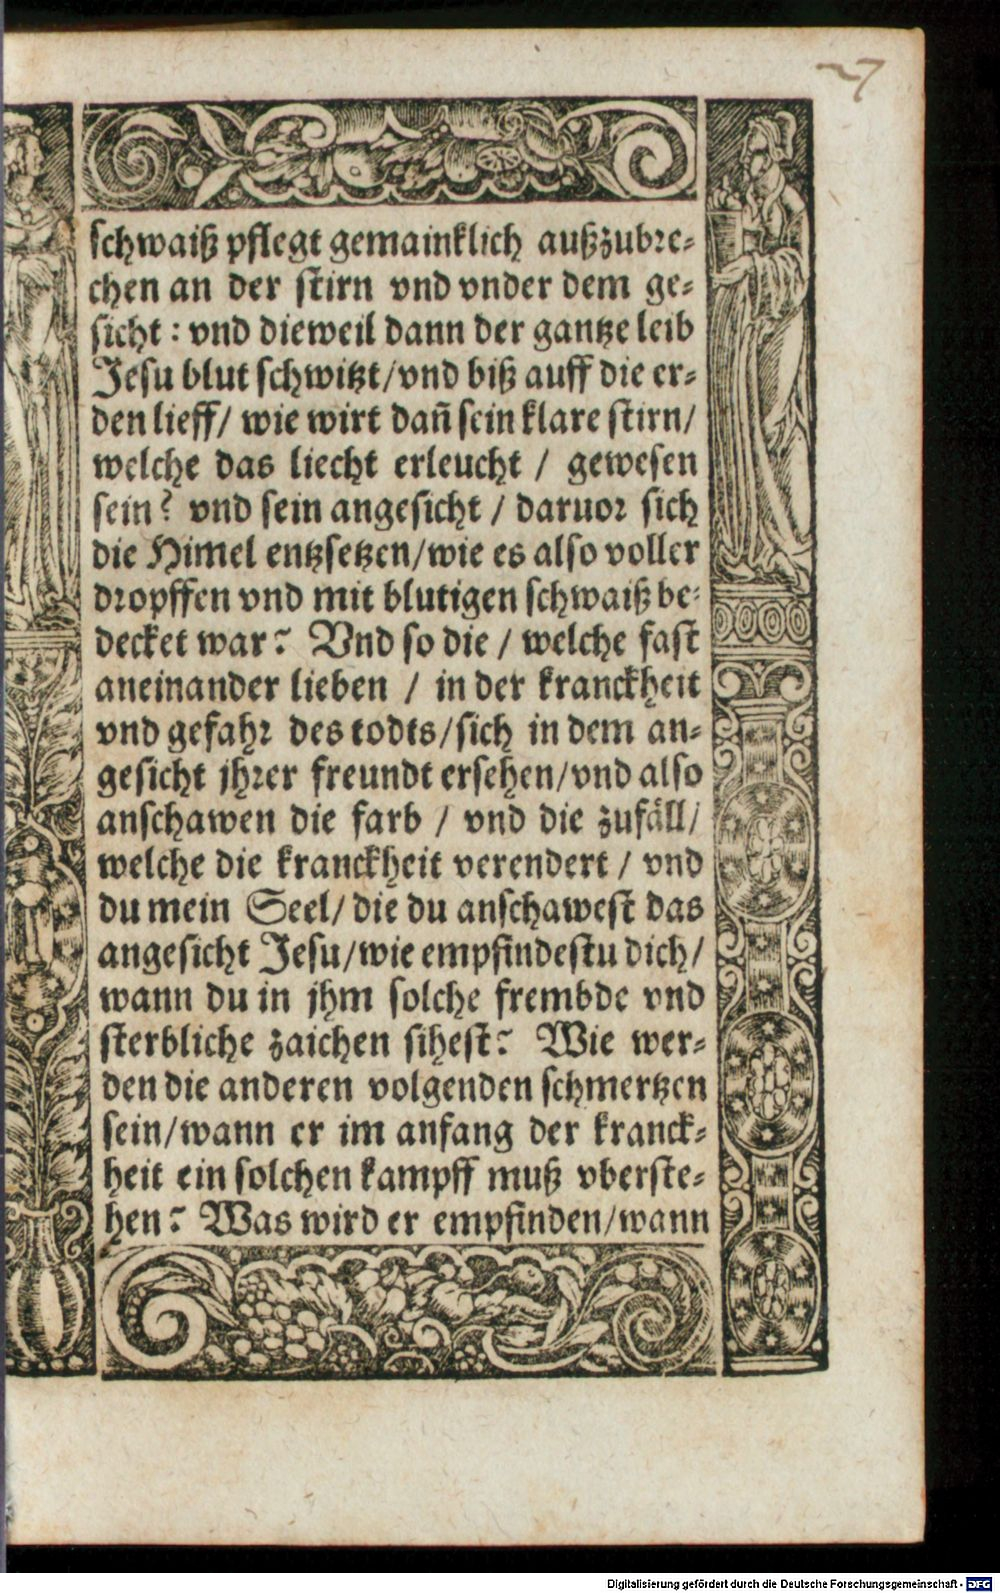 27
schwaiß pflegt gemainklich außzubre-
chen an der stirn vnd vnder dem ge-
sicht : vnd dieweil dann der gantze leib
Jesu blut schwitzt/vnd biß auff die er-
den lieff/ wie wirt dañ sein klare stirn/
welche das liecht erleucht / gewesen
sein? vnd sein angesicht / daruor sich
die Himel entzsetzen/wie es also voller
dropffen vnd mit blutigen schwaiß be-
decket war? Vnd so die / welche fast
aneinander lieben / in der kranckheit
vnd gefahr des todts/sich in dem an-
gesicht jhrer freundt ersehen/vnd also
anschawen die farb / vnd die zufäll/
welche die kranckheit verendert / vnd
du mein Seel/ die du anschawest das
angesicht Jesu/wie empfindestu dich/
wann du in jhm solche frembde vnd
sterbliche zaichen sihest? Wie wer-
den die anderen volgenden schmertzen
sein/wann er im anfang der kranck-
heit ein solchen kampff muß vberste-
hen? Was wird er empfinden/wann
Digitalisierung gefördert durch die Deutsche Forschungsgemeinschaft - DFG